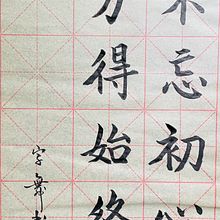 不忘初心
方得始终
字舞